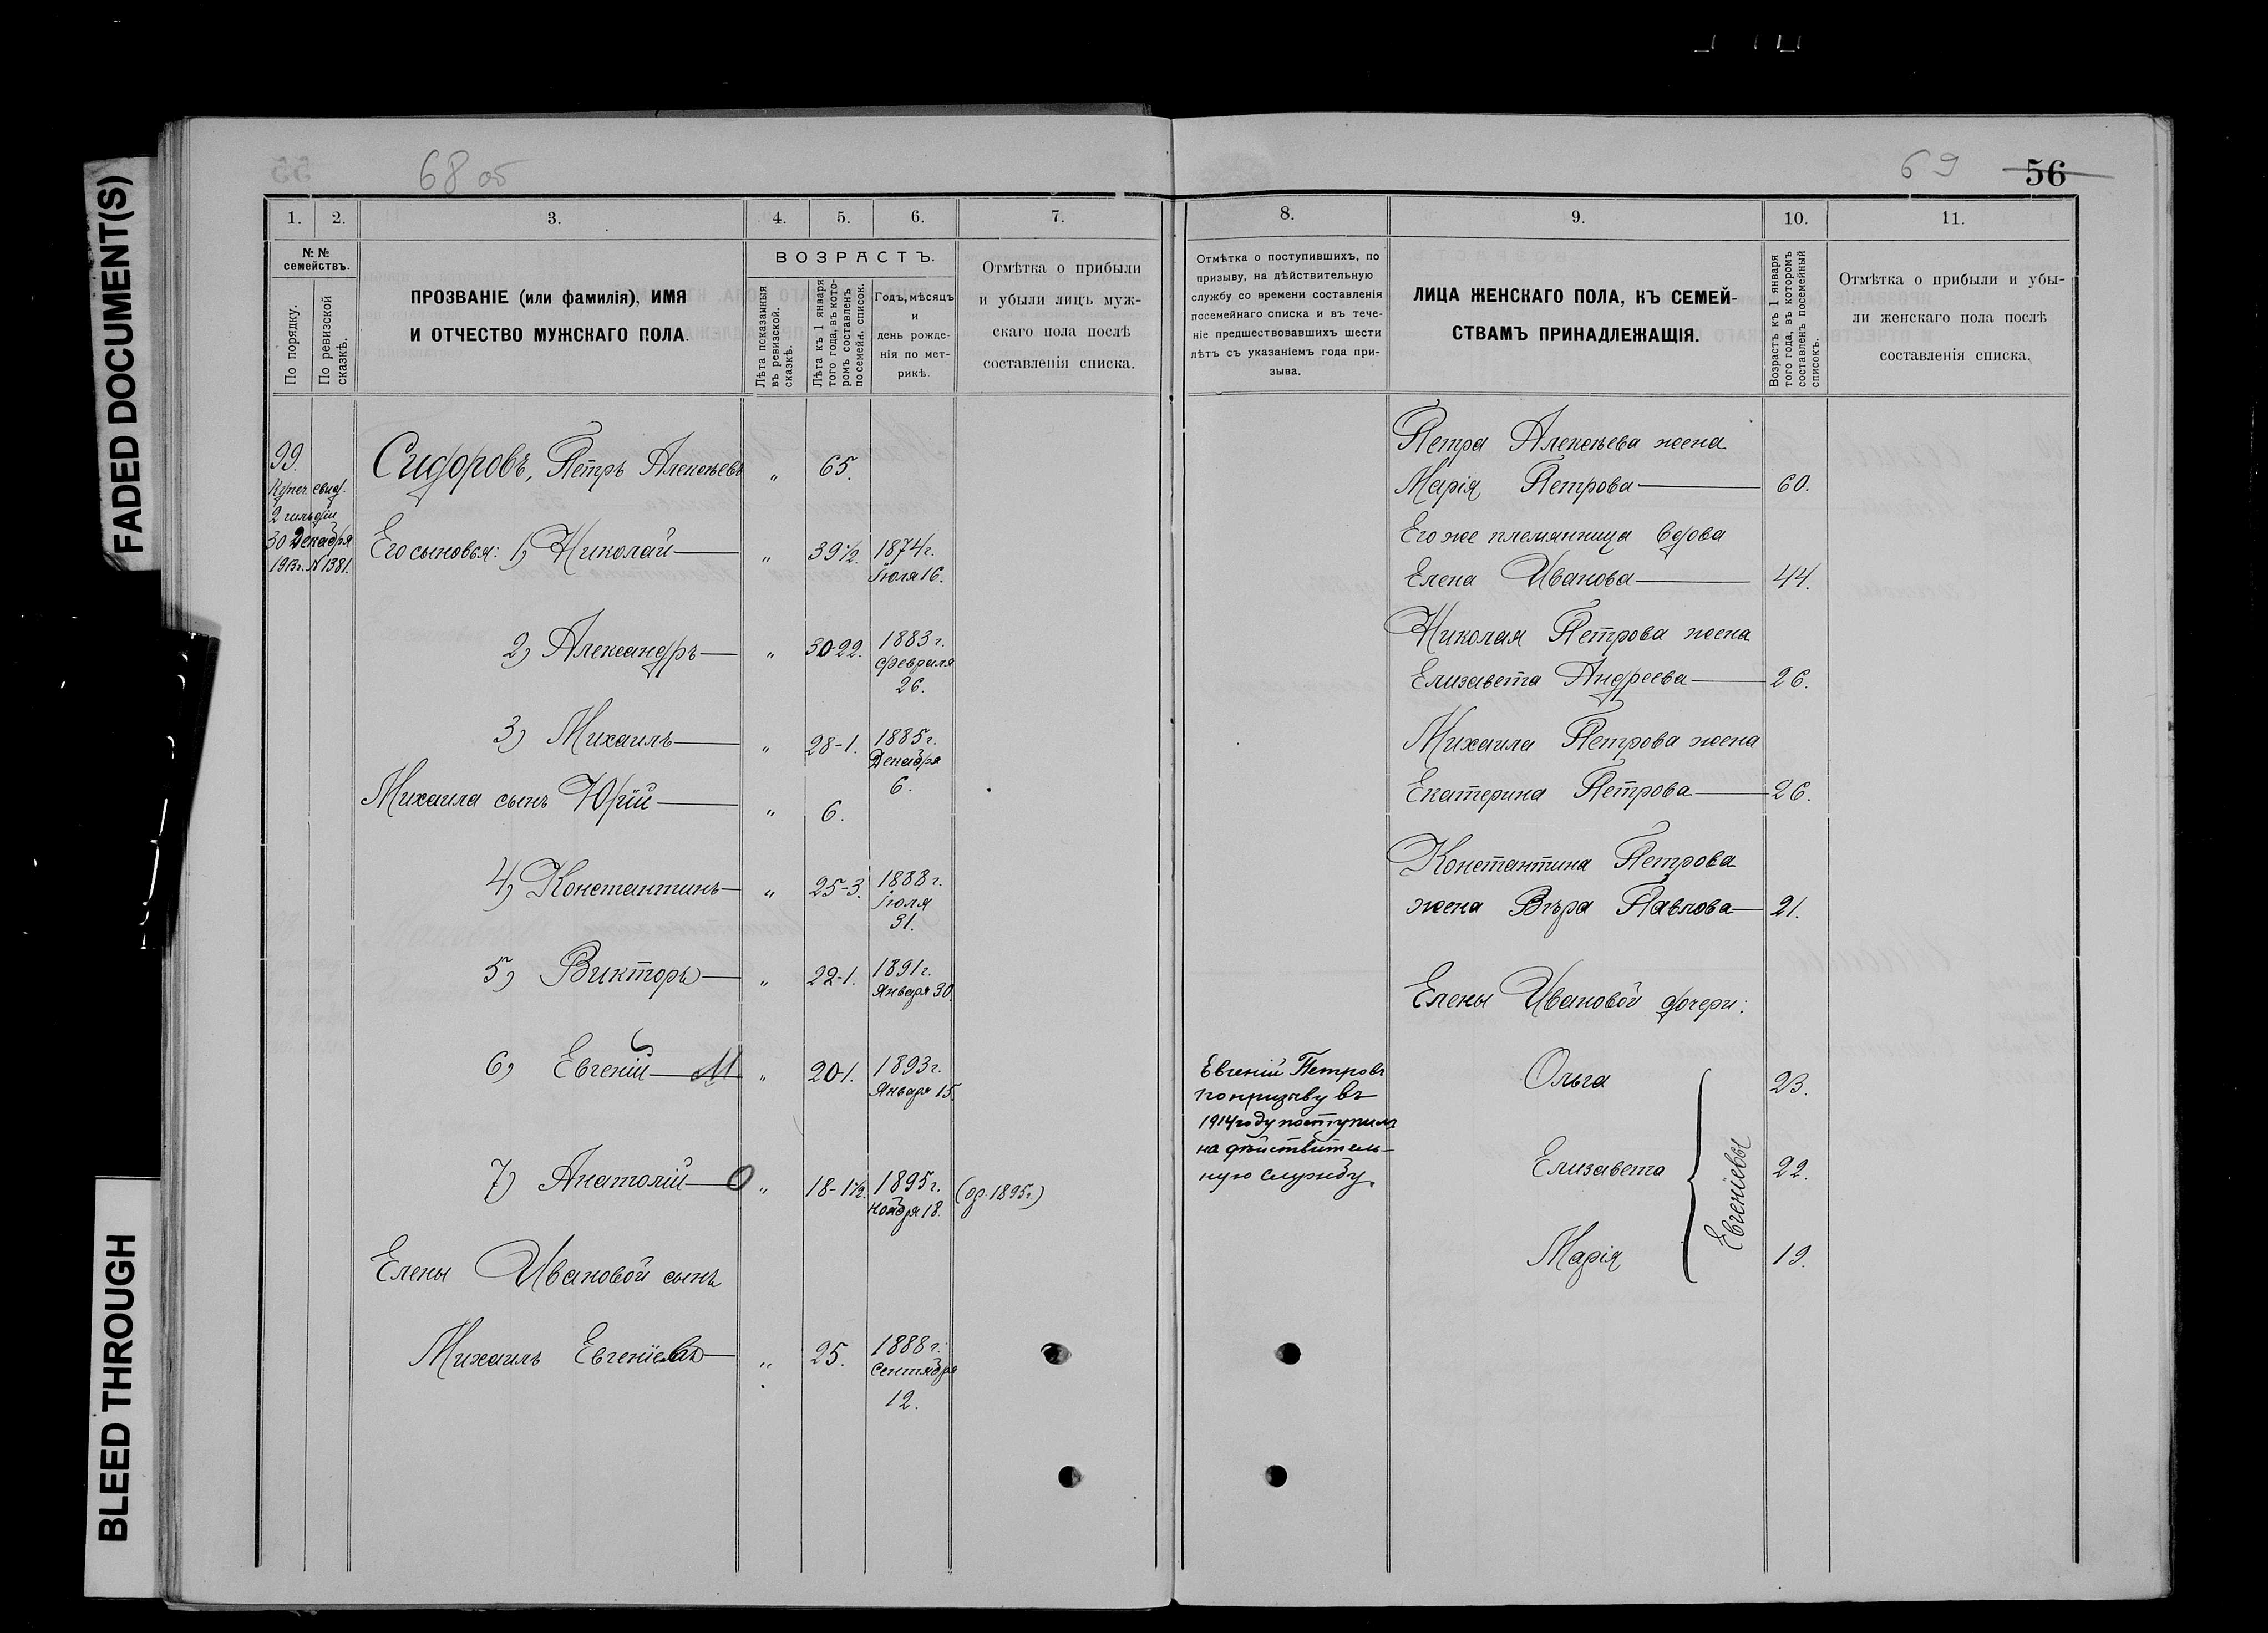 FADED DOCUMENT(S)
BLEED THROUGH
68 об
69 56
1. 2. 3. 4. 5. 6. 7.
№ № семействъ.
По порядку.
По ревизской сказкѣ.
ПРОЗВАНІЕ (или фамилія), ИМЯ
И ОТЧЕСТВО МУЖСКАГО ПОЛА.
ВОЗРАСТЪ.
Лѣта показанныя
въ ревизской.
сказкѣ.
Лѣта къ 1 января
того года, въ кото-
ромъ составленъ
посемейн. список.
Годъ, мѣсяцъ
и
день рожде-
нія по мет-
рикѣ.
Отмѣтка о прибыли
и убыли лицъ муж-
скаго пола послѣ
составленія списка.
99.
Купеч. свид.
2 гильдіи
30 Декабря
1913г. № 1381.
Сидоровъ, Петръ Алексѣевъ " 65.
Его сыновья: 1) Николай " 39½. 1874г.
Іюля 16.
2) Александръ " 30-22. 1883 г.
февраля
26.
3) Михаилъ " 28-1. 1885г.
Декабря
6.
Михаила сынъ Юрій " 6.
4) Константинъ " 25-3. 1888 г.
Іюля
31.
5) Викторъ " 22-1. 1891г.
Января 30.
6) Евгеній М " 20-1. 1893г.
Января 15.
7) Анатолій О " 18-1½. 1895г. (ор. 1895г.)
Ноября 18.
Елены Ивановой сынъ
Михаилъ Евгеніевъ " 25. 1888 г.
Сентября
12.
8. 9. 10. 11.
Отмѣтка о поступившихъ, по
призыву, на дѣйствительную
службу со времени составленія
посемейнаго списка и въ тече-
ніе предшествовавшихъ шести
лѣтъ съ указаніемъ года при-
зыва.
ЛИЦА ЖЕНСКАГО ПОЛА, КЪ СЕМЕЙ-
СТВАМЪ ПРИНАДЛЕЖАЩІЯ.
Возрастъ къ 1 января
того года, въ которомъ
составленъ посемейный
списокъ.
Отмѣтка о прибыли и убы-
ли женскаго пола послѣ
составленія списка.
Петра Алексѣева жена
Марія Петрова 60.
Его же племянница вдова
Елена Иванова 44.
Николая Петрова жена
Елизавета Андреева 26.
Михаила Петрова жена
Екатерина Петрова 26.
Константина Петрова
жена Вѣра Павлова 21.
Елены Ивановой дочери:
Евгеній Петровъ
по призыву въ
1914 году поступилъ
на дѣйствитель-
ную службу.
Ольга 23.
Елизавета 22.
Марія 19.
Евгеніевы